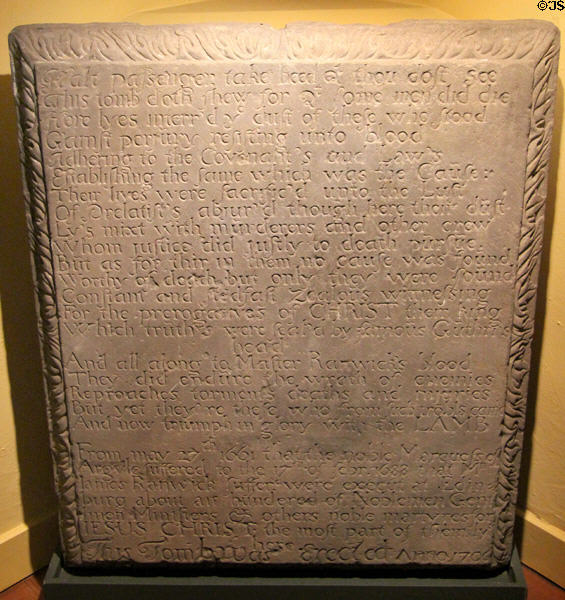 ©JS
Halt passenger take heed qt thou dost see
This tomb doth shew for qt some men did die
Here lyes interr'd ye dust of these who stood
Gainst perjury resisting unto blood
Adhering to the Covenants and Laws
Establishing the same which was the Cause
Their lives were sacrific'd unto the Lust
Of Prelatist's abjur'd though here their dust
Ly's mixt with murderers and other crew
Whom justice did justly to death pursue
But as for thir in them no cause was found
Worthy of death but only they were sound
Constant and stedfast Zealous witnessing
For the prerogatives of CHRIST their King
Which truth's were seal'd by famous Guthrie's
head
And all along to Master Ranwick's blood
They did endure the wrath of enemies
Reproaches torments deaths and injuries
But yet they're these who from such trouble came
And now triumph in glory with the LAMB
From may 27th 1661 that the noble Marquess of
Argyle suffered to the 17th of Febr. 1688 that Mr
James Ranwick suffer'd were execut at Edin
burg about an hundered of Noblemen Gen
tlmen Ministers & others noble martyres for
JESUS CHRIST the most part of them lie here
This Tomb was Erected Anno 1706